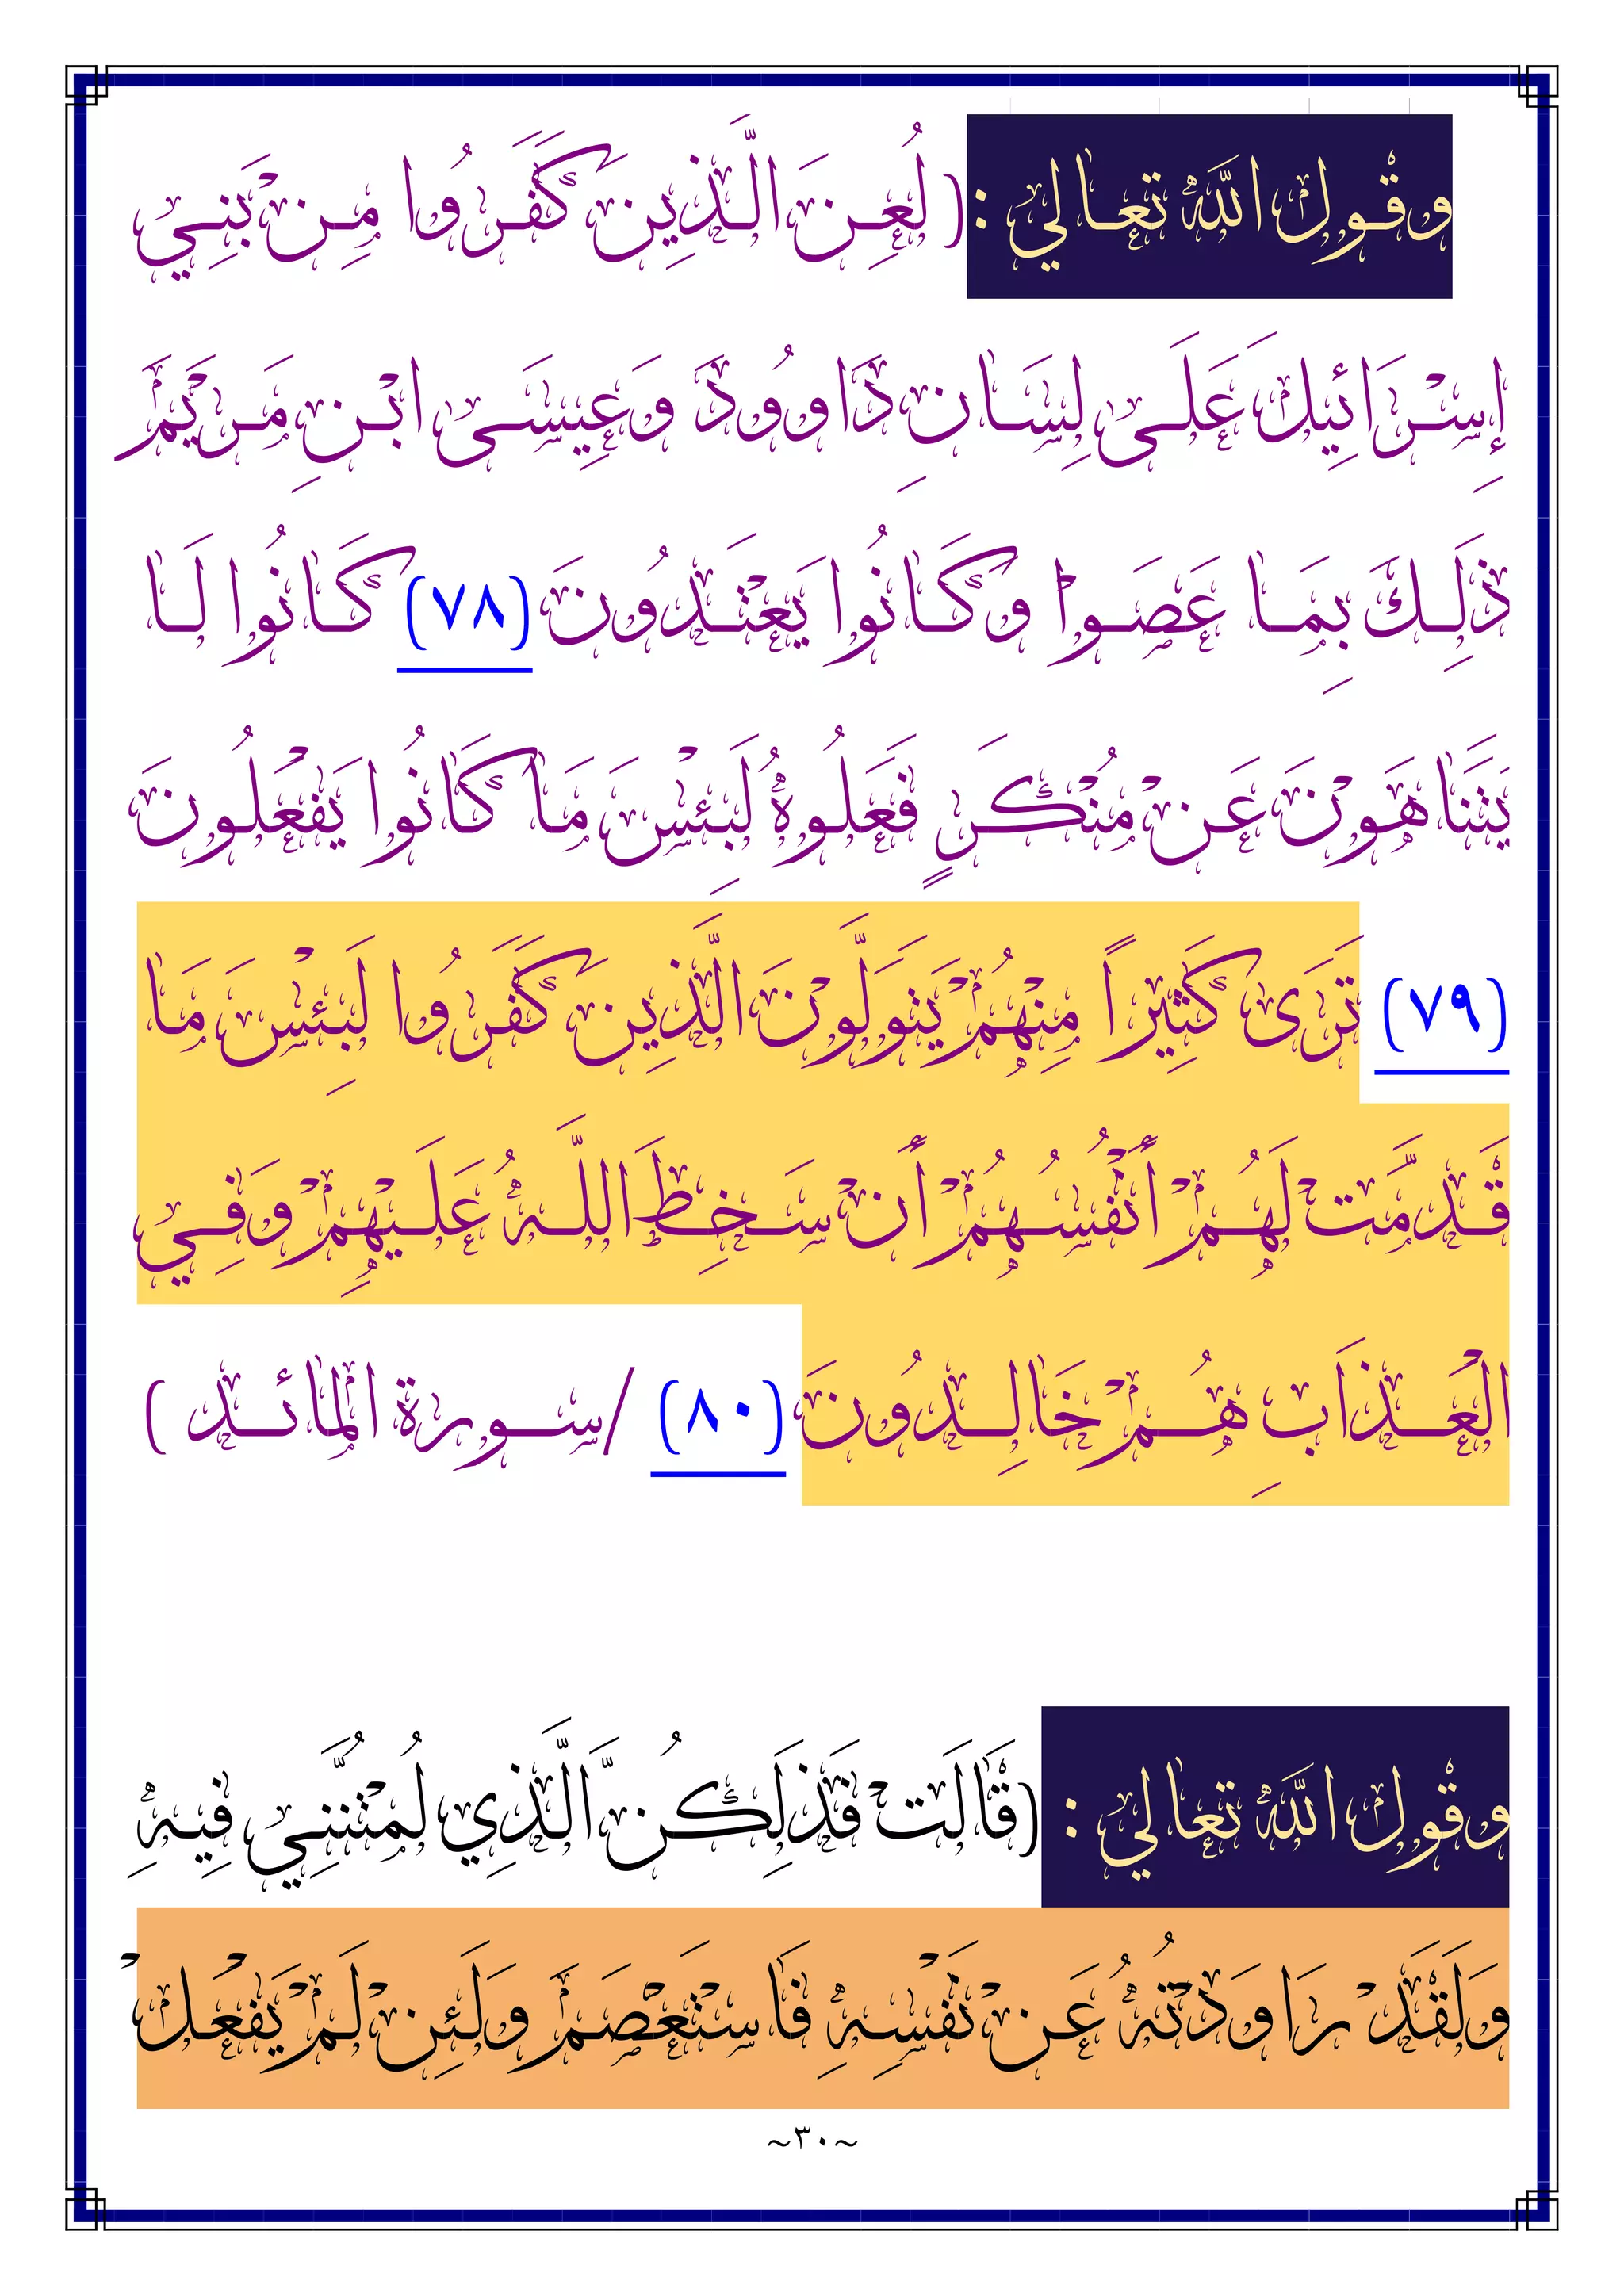 وقول الله تعالي : ( لُعِنَ الَّذِينَ كَفَرُوا مِن بَنِي
إِسْرَائِيلَ عَلَى لِسَانِ دَاوُودَ وَعِيسَى ابْنِ مَرْيَمَ
ذَلِكَ بِمَا عَصَوا وَكَانُوا يَعْتَدُونَ (٧٨) كَانُوا لَا
يَتَنَاهَوْنَ عَنْ مُنْكَرٍ فَعَلُوهُ لَبِئْسَ مَا كَانُوا يَفْعَلُونَ
(٧٩) تَرَى كَثِيرًا مِنْهُمْ يَتَوَلَّوْنَ الَّذِينَ كَفَرُوا لَبِئْسَ مَا
قَدَّمَتْ لَهُمْ أَنْفُسُهُمْ أَنْ سَخِطَ اللَّهُ عَلَيْهِمْ وَفِي
الْعَذَابِ هُمْ خَالِدُونَ (٨٠) /سورة المائد )
وقول الله تعالي : (قَالَتْ فَذَلِكُنَّ الَّذِي لُمْتُنَّنِي فِيهِ
وَلَقَدْ رَاوَدْتُهُ عَنْ نَفْسِهِ فَاسْتَعْصَمَ وَلَئِنْ لَمْ يَفْعَلْ
~٣٠~